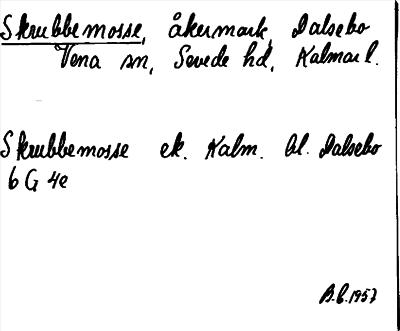 Skrubbemosse, åkermark, Dalsebo
Vena sn, Sevede hd, Kalmar l.
Skrubbemosse ek. Kalm. bl. Dalsebo
6 G 4e
B.b. 1957